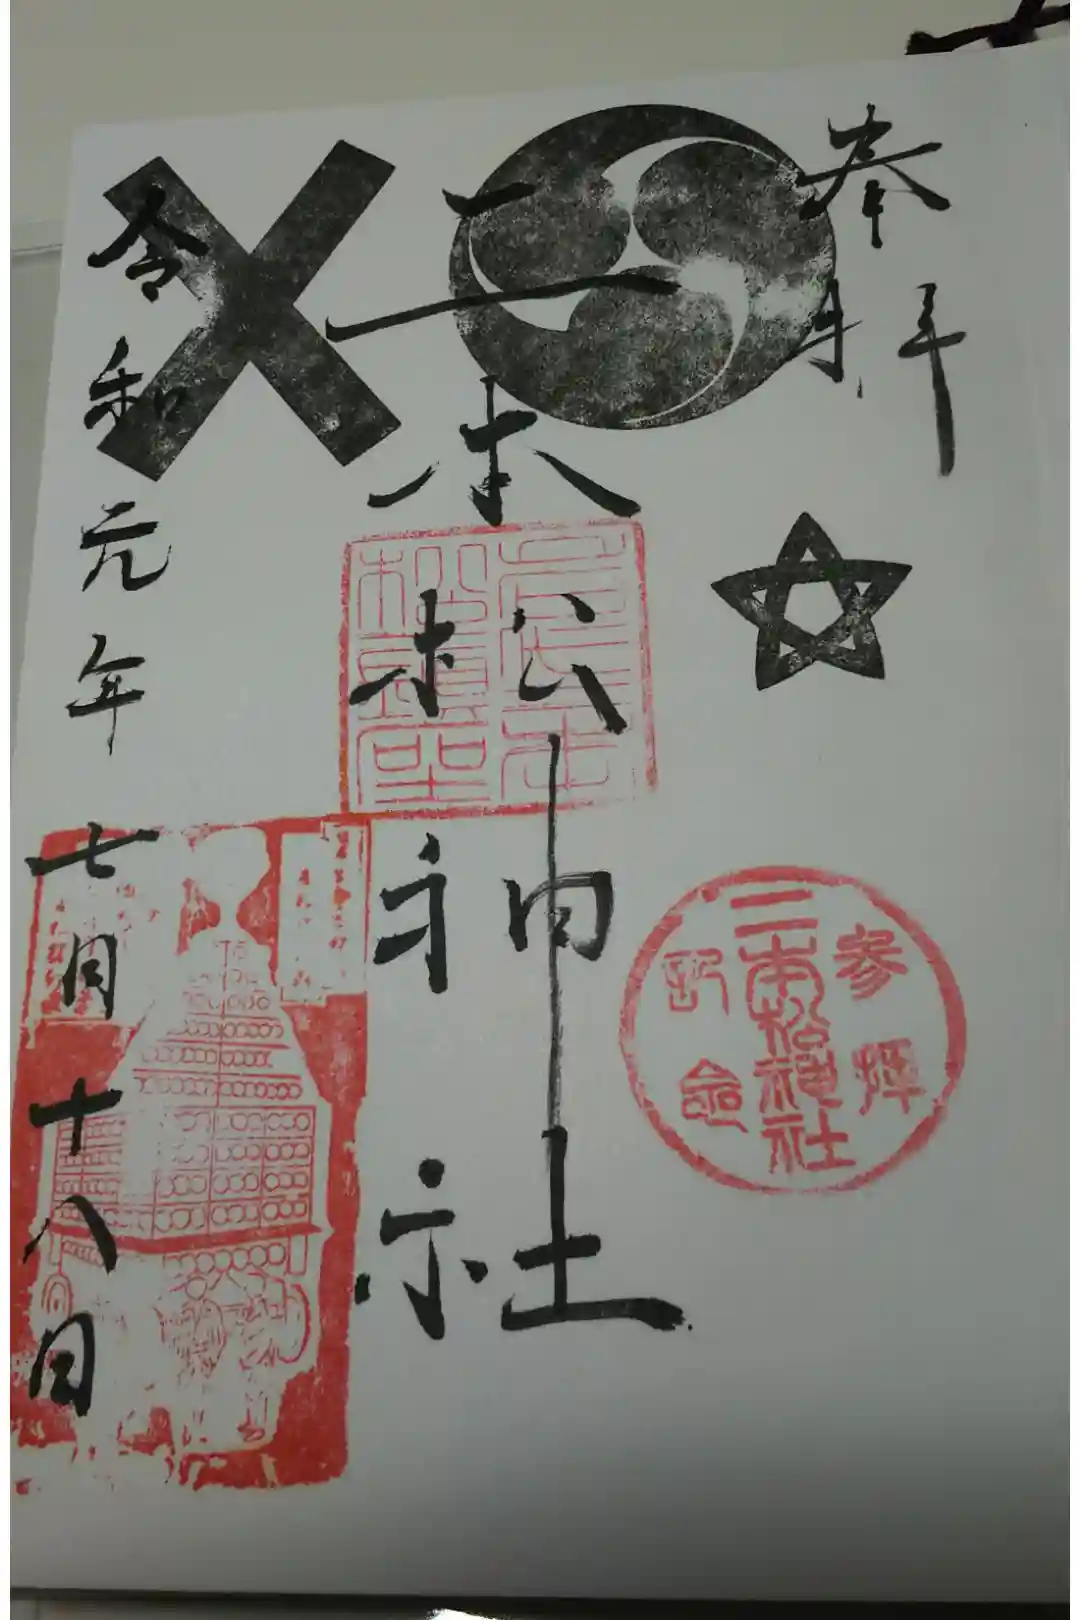 奉拝
二本松神社
令和元年七月十八日
参拝
二本松神社
記念